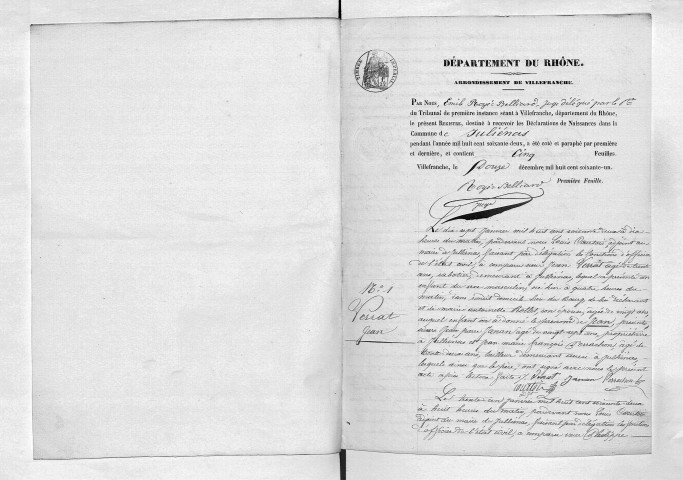 TIMBRE IMPERIAL
DÉPARTEMENT DU RHÔNE.
ARRONDISSEMENT DE VILLEFRANCHE.
PAR NOUS, Emile Royé-Belliard, juge délégué par le Pt
du Tribunal de première instance séant à Villefranche, département du Rhône,
le présent REGISTRE, destiné à recevoir les Déclarations de Naissances dans la
Commune de Juliénas
pendant l'année mil huit cent soixante-deux, a été coté et paraphé par première
et dernière, et contient Cinq Feuilles.
Villefranche, le Douze décembre mil huit cent soixante-un.
Royé-Belliard Première Feuille.
juge
Le dix sept janvier mil huit cent soixante deux à dix
heures du matin, pardevant nous Louis adjoint au
maire de Jullienas faisant par délégation les fonctions d'officier
de l'état civil, a comparu sieur Jean Verrat âgé de trente
ans, sabotier, demeurant à Jullienas, lequel nous a présenté un
enfant du sexe masculin, né hier à quatre heures du
matin, en son domicile au Bourg de lui déclarant
et de marie antoinette Rollet, son épouse, âgée de vingt ans,
auquel enfant on a donné le prénom de Jean, présents
sieurs Jean pierre Janan âgé de vingt sept ans, propriétaire
à Jullienas et Jean marie françois Perrachon âgé de
trente deux ans, demeurant aussi à Jullienas,
lesquels ainsi que le père, ont signé avec nous le présent
acte après lecture faite. Verrat Janan Perrachon
N° 1
Verrat
Jean
Le trente un janvier mil huit cent soixante deux
à huit heures du matin, pardevant nous Louis
adjoint du maire de Jullienas, faisant par délégation les fonctions
d'officier de l'état civil, a comparu sieur Philippe